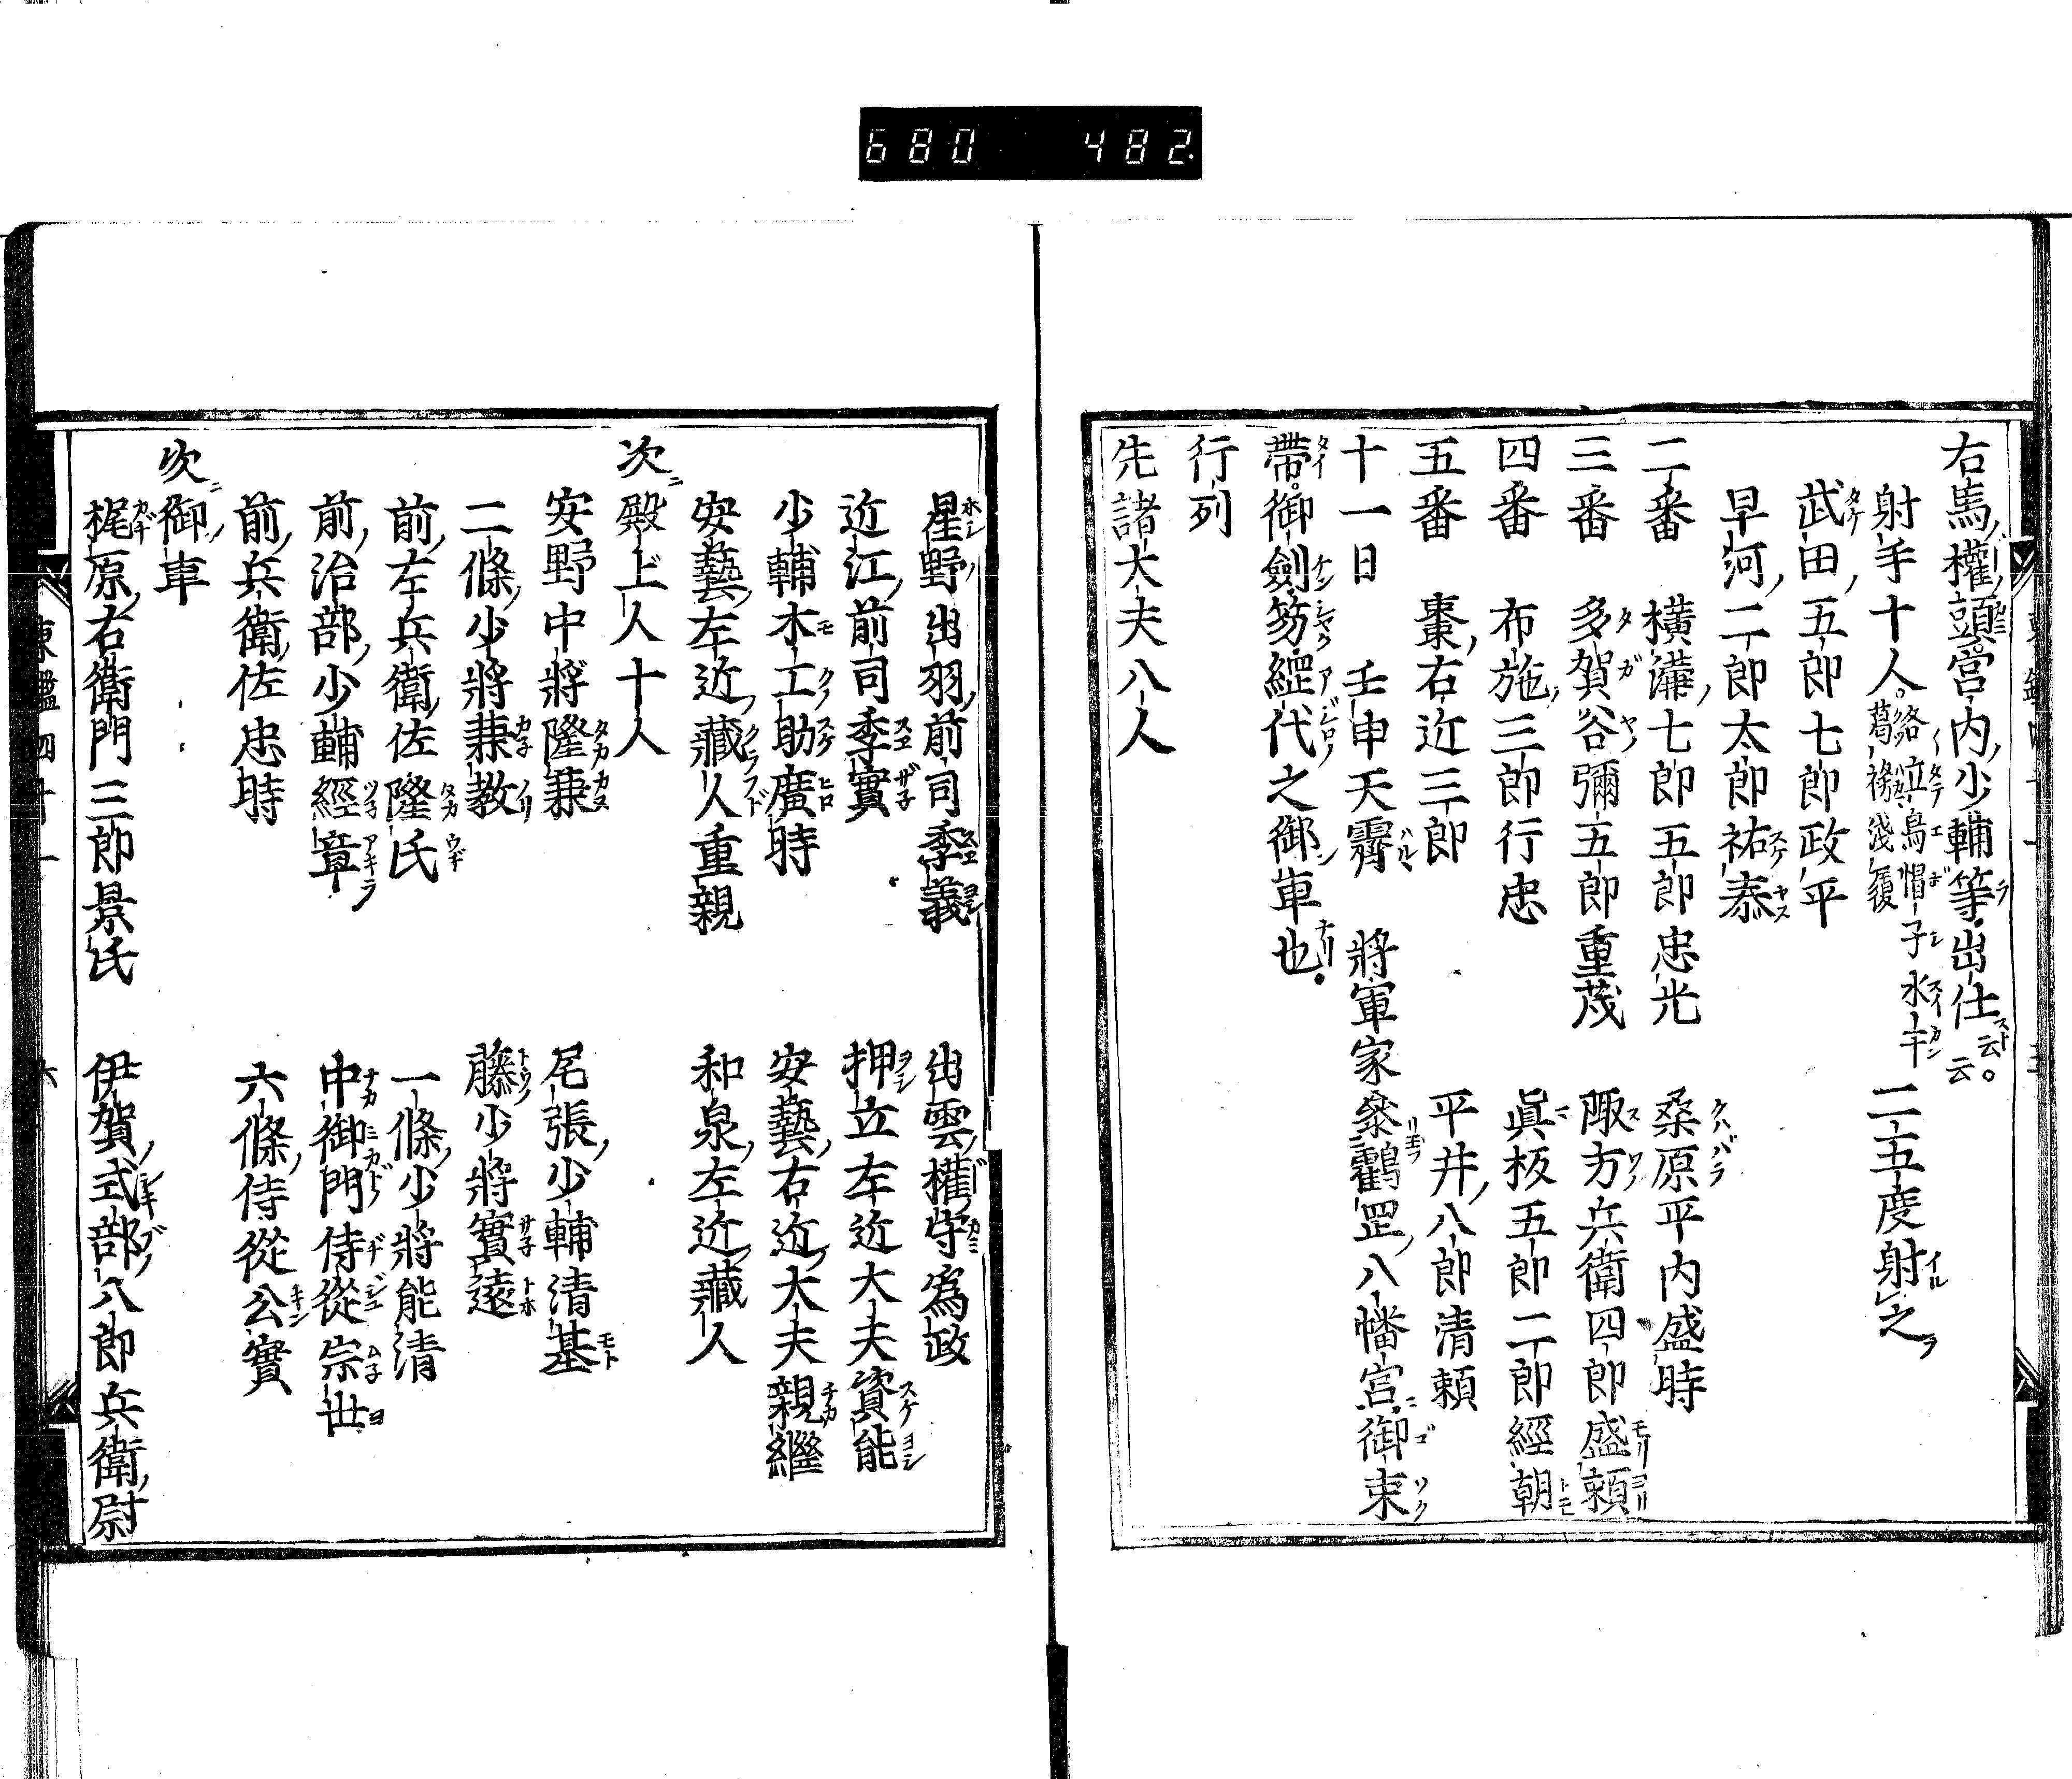 680 482.
右馬權頭宮内少輔等出仕云云。
射手十人。著立烏帽子水干葛袴淺履 二五度射之
武田五郎七郎政平
早河二郎太郎祐泰
二番 橫溝七郎五郎忠光 桑原平内盛時
三番 多賀谷彌五郎重茂 陬方兵衛四郎盛頼
四番 布施三郎行忠 眞板五郎二郎經朝
五番 棗右近三郎 平井八郎清頼
十一日 壬申天霽 將軍家參鶴罡八幡宮御束
帶御劍笏網代之御車也。
行列
先諸大夫八人
星野出羽前司季義 出雲權守爲政
近江前司季實 押立左近大夫資能
少輔木工助廣時 安藝右近大夫親繼
安藝左近藏人重親 和泉左近藏人
次殿上人十人
安野中將隆兼 尾張少輔清基
二條少將兼教 藤少將實遠
前左兵衛佐隆氏 一條少將能清
前治部少輔經章 中御門侍從宗世
前兵衛佐忠時 六條侍從公實
次御車
梶原右衛門三郎景氏 伊賀式部八郎兵衛尉
東鑑四十一 六